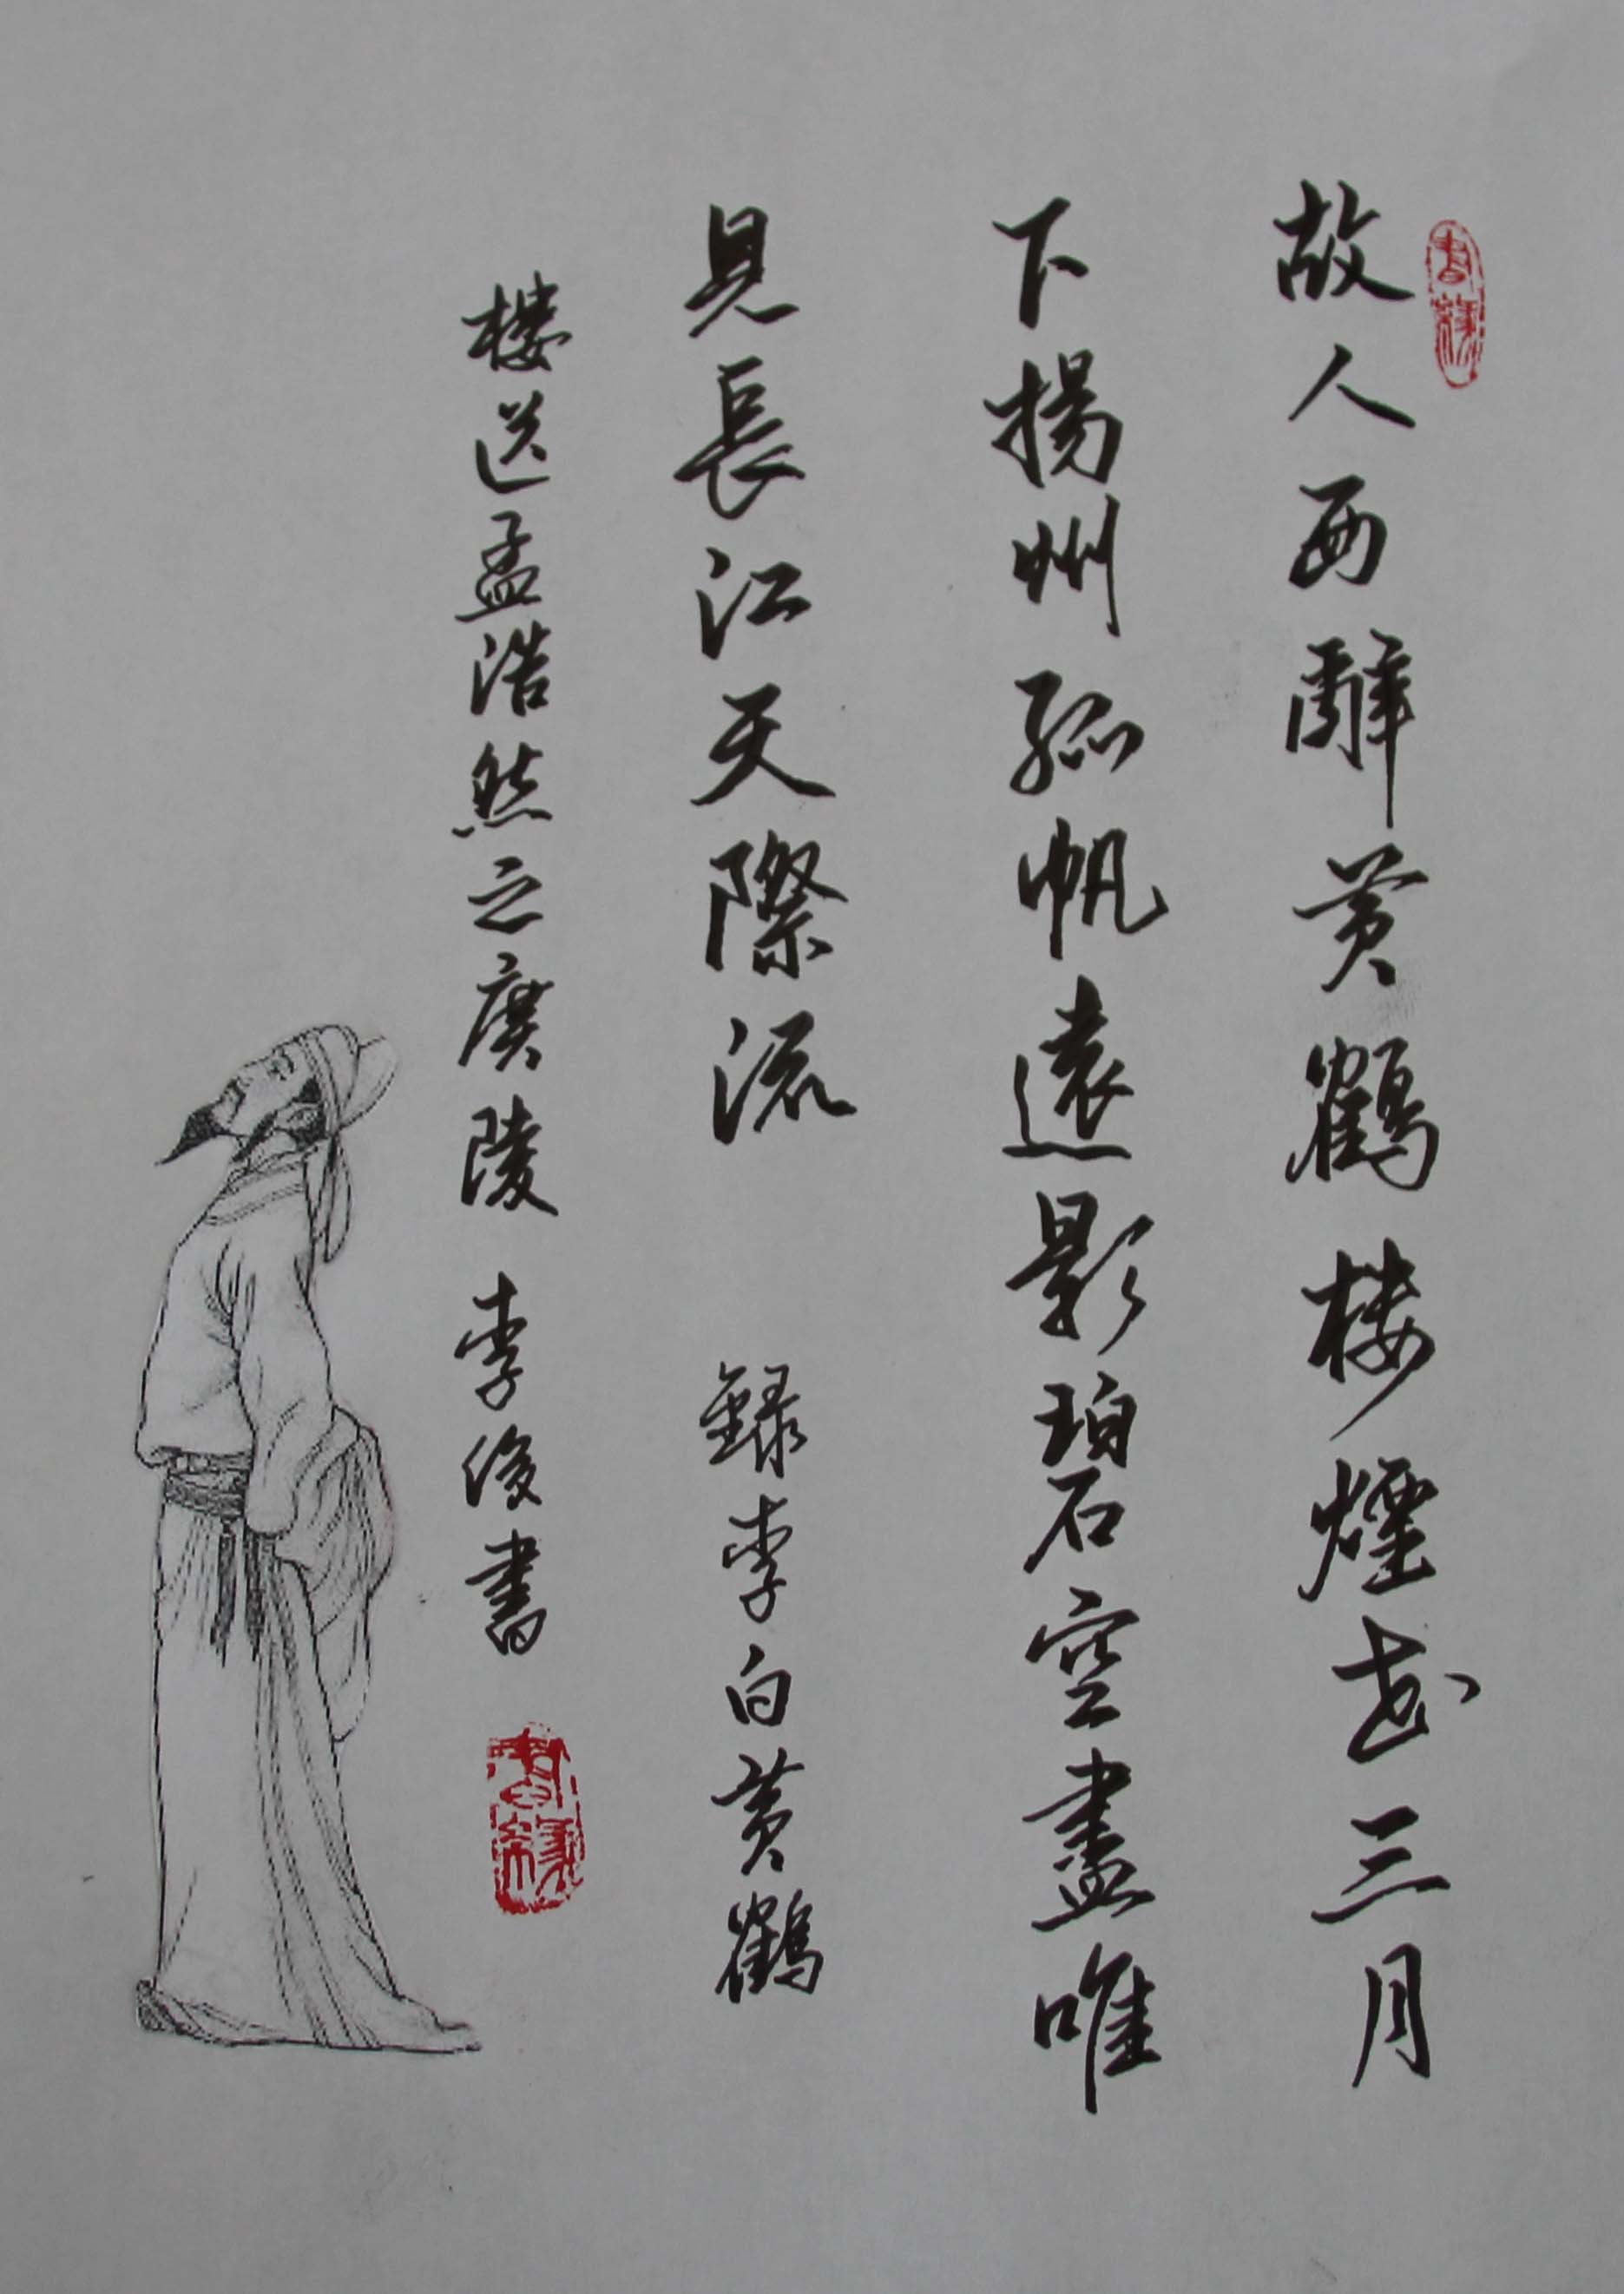 故人西辭黄鶴楼煙花三月
下揚州孤帆遠影碧空盡唯
見長江天際流 録李白黄鶴
楼送孟浩然之廣陵 李俊書